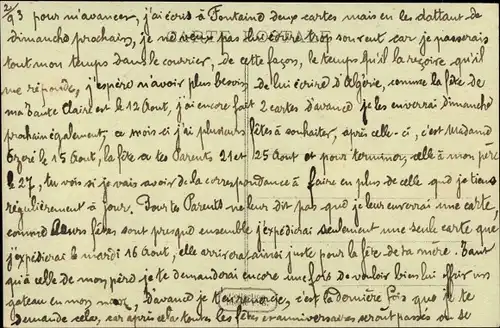 2/
93 pour m'avancer, j'ai écris à Fontaine deux cartes mais en les dattant de
dimanche prochain, je ne veux pas lui écrire trop souvent car je passerais
tout mon temps dans le courrier, de cette façon, le temps qu'il la reçoive qu'il
me réponde, j'espère n'avoir plus besoin de lui écrire d'Algérie, comme la fête de
ma Tante Claire est le 12 Aout, j'ai encore fait 2 cartes d'avance je les enverrai dimanche
prochain également, ce mois-ci j'ai plusieurs fêtes à souhaiter, après celle-ci, c'est Madame
le 15 Aout, la fête à tes Parents 21 et 25 Aout et pour terminer, celle à mon père
le 27, tu vois si je vais avoir de la correspondance à faire en plus de celle que je tiens
régulièrement à jour. Pour tes Parents ne leur dit pas que je leur enverrai une carte,
comme leurs fêtes sont presque ensemble j'expédierai seulement une seule carte que
j'expédierai le mardi 16 Aout, elle arrivera ainsi juste pour la fête de ta mère. Tant
qu'à celle de mon père je te demanderai encore une fois de vouloir bien lui offrir un
gateau en mon nom, d'avance je t'en remercie, c'est la dernière fois que je te
demande cela, car après cela toutes les fêtes et anniversaires seront passés